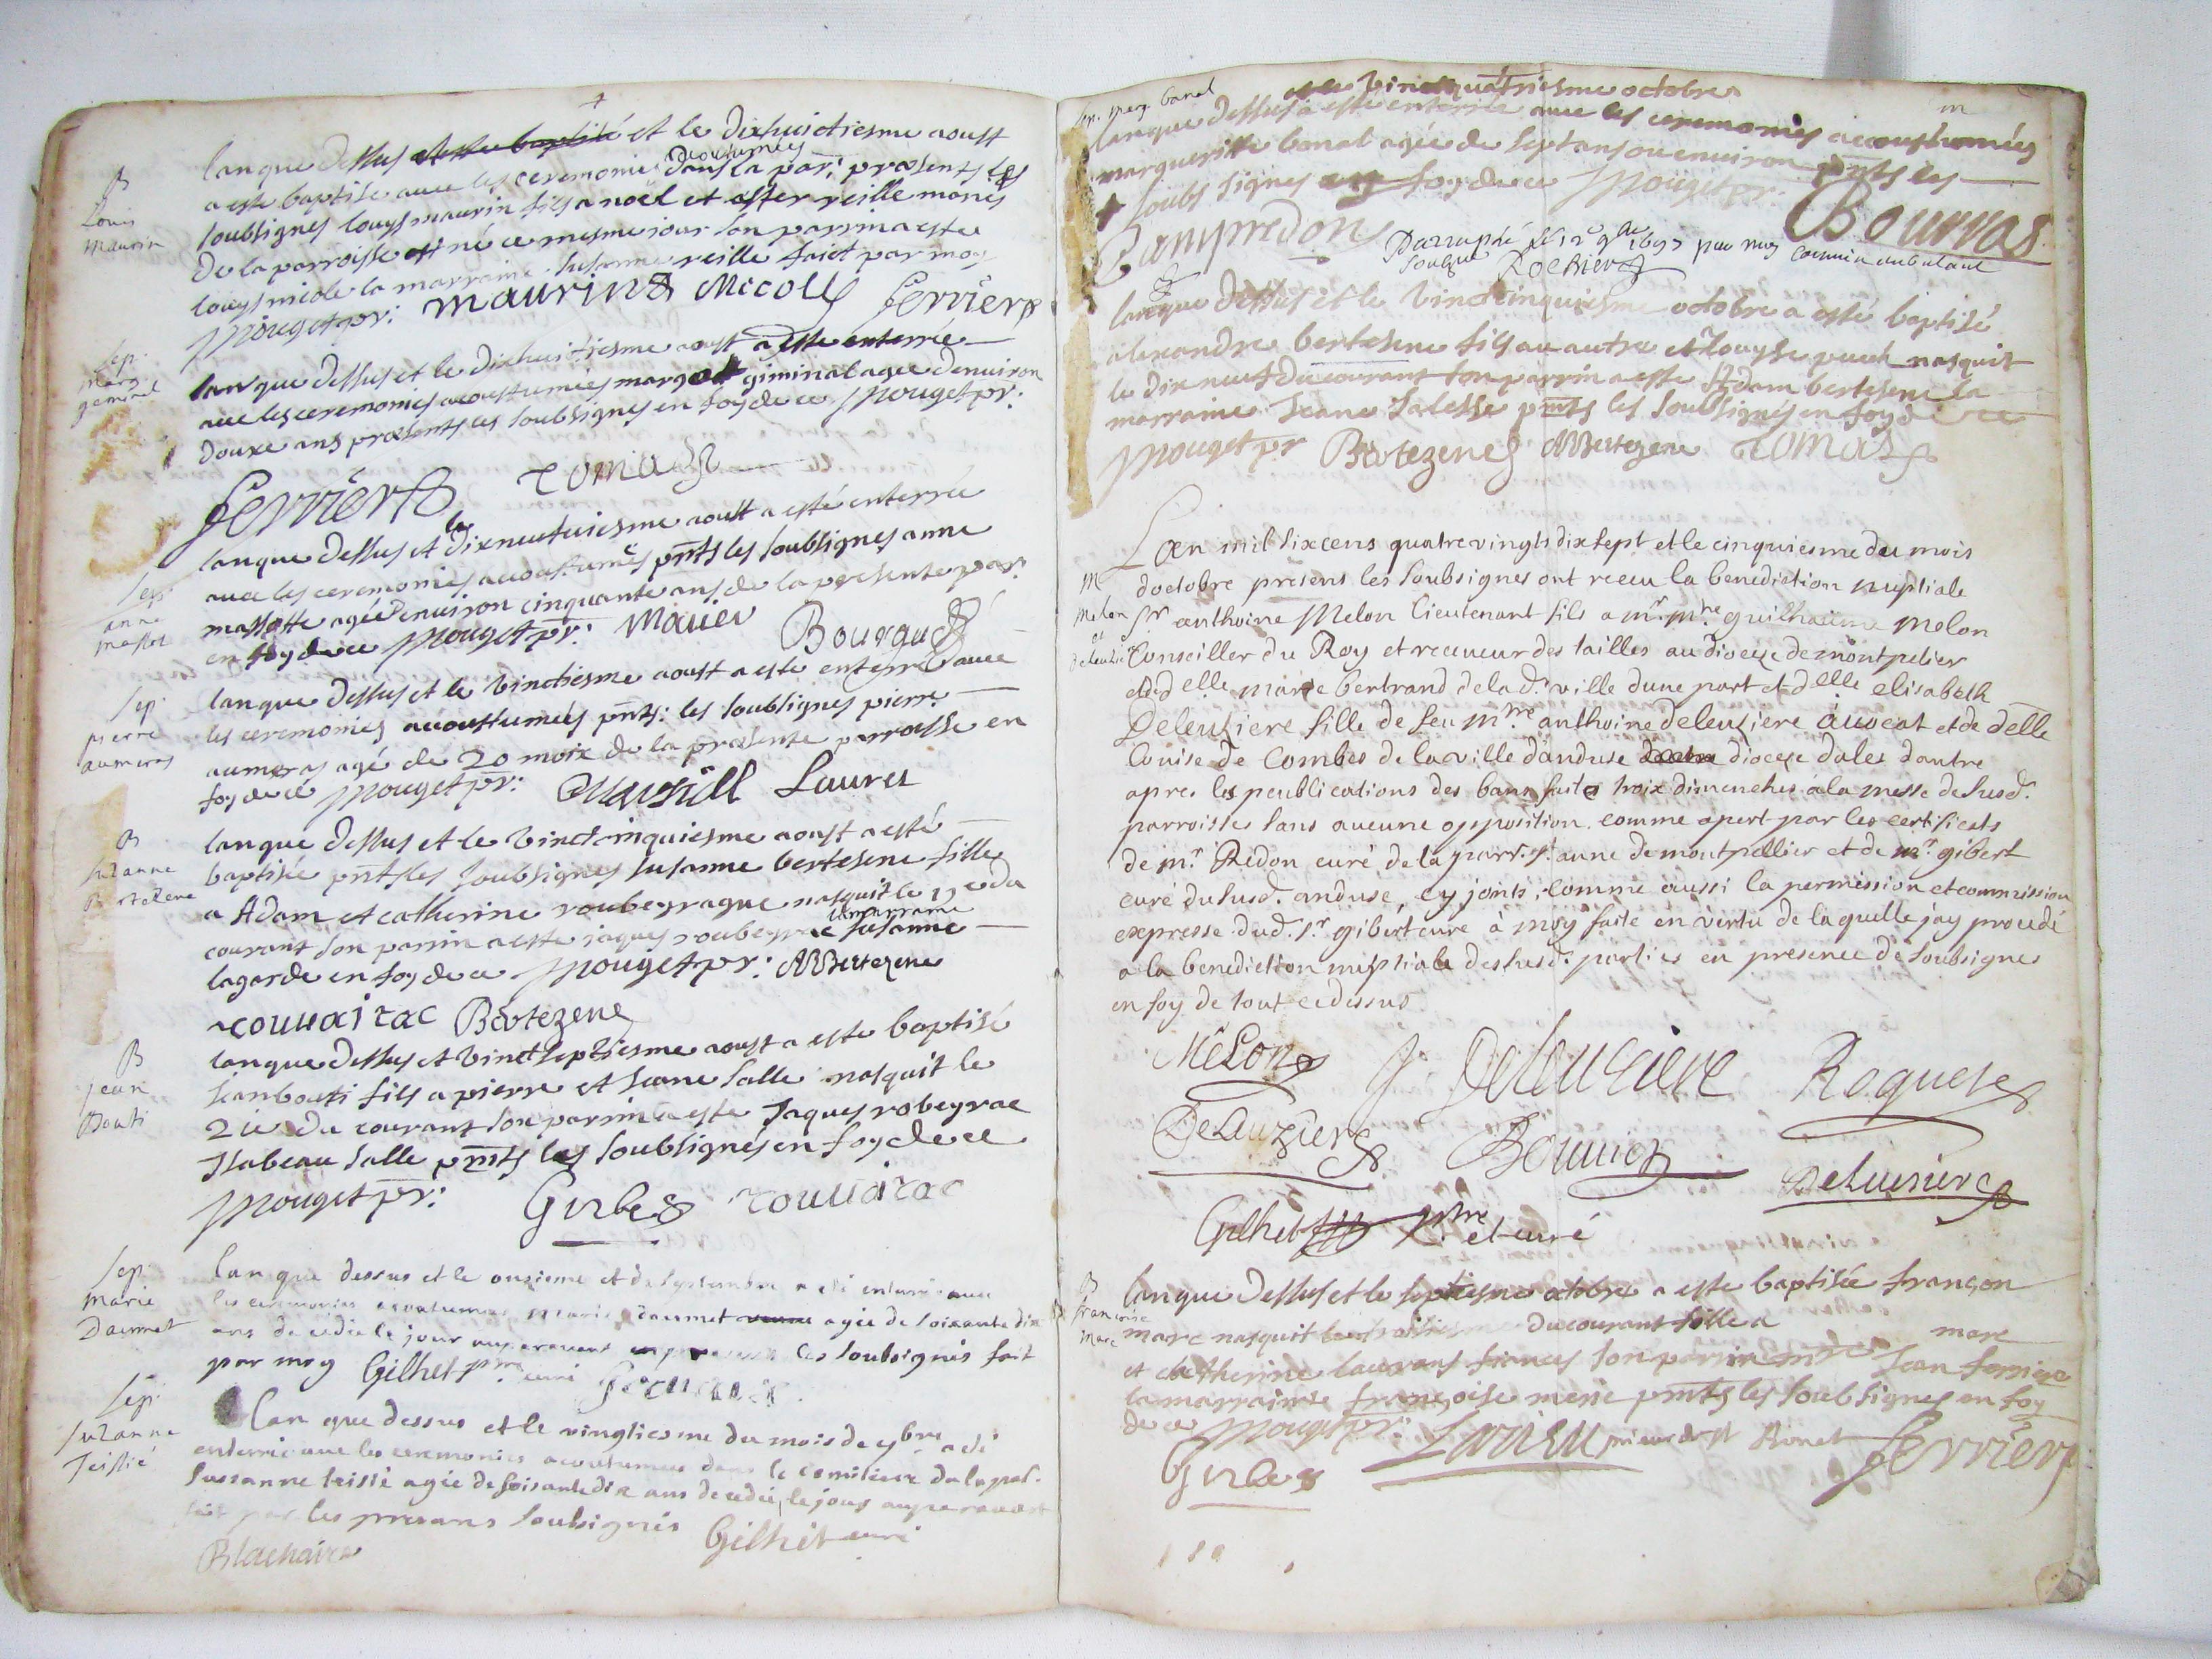 B
Louis
Maurin
lan que dessus a este baptisé et le dixhuictiesme aoust
a este baptise avec les ceremonies acoustumees dans la par: præsents les
soubsignes louys maurin fils a noël et ester reille mariés
de la parroisse est né ce mesme jour son parrin a este
louys nicole la marraine susanne reille faict par moy
Mouget pr: Maurin Nicolle Ferriere
Sep.
marg
geminel
lan que dessus et le dixhuictiesme aoust a este enterrée
avec les ceremonies acoustumées margot giminal agee denuiron
douze ans præsents les soubsignes en foy de ce Mouget pr:
Ferriere Tomas
Sep.
anne
massot
lan que dessus et le dixneufuiesme aoust a esté enterrée
avec les ceremonies acoustumés pnts les soubsignes anne
massotte agée denuiron cinquante ans de la presente par:
en foy de ce Mouget pr:
Sep.
pierre
aumeras
lan que dessus et le vinctiesme aoust a este enterré avec
les ceremonies acoustumées pnts: les soubsignes pierre
aumeras agé de 20 moix de la præsente parroisse en
foy de ce Mouget pr: Lauret
B
Suzanne
Bertezene
lan que dessus et le vinctcinquiesme aoust a esté
baptisée pnts les soubsignes susanne bertesene fille
a Adam et catherine roubeyrague nasquit le 19e du
courant son parrin a este jaques roubeyrac la marraine susanne
lagarde en foy de ce Mouget pr: ABertezene
rouuairac Bertezene
B
jean
Bouti
lan que dessus et vinctseptiesme aoust a este baptisé
Jean bouti fils a pierre et Jeane salle nasquit le
21e du courant son parrin a este Jaques robeyrac
Isabeau salle pnts les soubsignés en foy de ce
Mouget pr: Girbes rouuairac
Sep.
Marie
Daumet
lan que dessus et le onzieme de septembre a été enterré avec
les ceremonies acoutumees marie daumet agée de soixante dix
ans decedée le jour auparavant les soubsignés fait
par moy Gilhet ptre curé
Sep.
Suzanne
Teissié
lan que dessus et le vingtiesme du mois de 7bre a été
enterrée avec les ceremonies acoutumees dans le cemitiere de la par.
suzanne teissié agée de soisante dix ans decedée le jour auparavant
fait par les presans soubsignés Gilhet curé
Blachaire
Sep. Marg. banal
et le vinctquatriesme octobre
lan que dessus a este enterrée avec les ceremonies acoustumées
margueritte banal agée de sept ans ou enuiron pnts les
soubs signes en foy de ce Mouget pr:
Campredon Bourras
Parraphé le 12e 9bre 1697 par moy commis ambulant
Rochier
B
lan que dessus et le vinctcinquiesme octobre a esté baptisé
alexandre bertesene fils au autre et louyse puech nasquit
le dix neuf du courant son parrin a este Adam bertesene la
marraine Jeane salesse pnts les soubsignés en foy de ce
Mouget pr Bertezene ABertezene Tomas
M
Melon
et
deleuziere
Lan mil sixcens quatre vingts dix sept et le cinquiesme du mois
doctobre presens les soubsignes ont receu la benediction nuptiale
Sr anthoine Melon lieutenant fils a mr. mre. guilhaume Melon
Conseiller du Roy et receueur des tailles au dioceze de montpelier
et delle marie bertrand de lad. ville dune part et delle elisabeth
Deleuziere fille de feu mtre. anthoine deleuziere auocat et de delle
louise de Combes de la ville danduse diocese dales dautre
apres les peublications des bans faites troix dimenches a la messe desusd.
parroisses sans aucune opposition comme apert par les certificats
de mr. Redon curé de la parr. St. anne de montpellier et de mr. gibert
curé du susd. anduse, cy joints, comme aussi la permission et commission
expresse dud. sr. gibert curé à moy faite en vertu de la quelle jay procedé
a la benediction nuptiale des susd. parties en presence de soubsignes
en foy de tout ce dessus
Melon J. Deleuziere Roquete
Delauziere Bouuier Deleusiere
Gilhet ptre et curé
B
francoise
Marc
lan que dessus et le septiesme octobre a este baptisée françon
marc nasquit du courant fille a marc
et catherine laurans fiances son parrin Jean ferriere
la marraine françoise merie pnts les soubsignes en foy
de ce Mouget pr: prieur de St Bonet Ferriere
Girbes